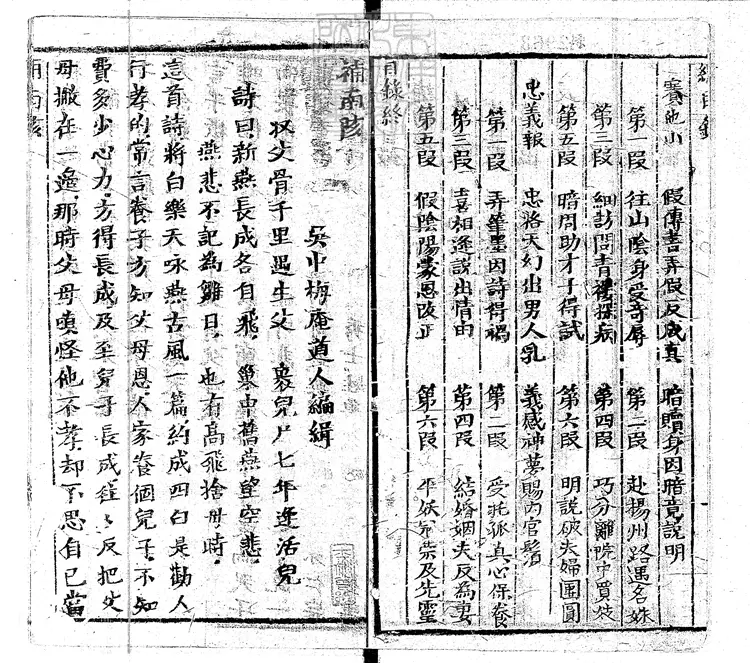 賽他山 假傳書弄假反成真 暗贖身因暗竟說明
第一段 往山陰身受奇辱 第二段 赴揚州路遇名姝
第三段 細訪問青樓探病 第四段 巧分離院中賈妓
第五段 暗周助才子得試 第六段 明說破夫婦團圓
忠義報 忠格天幻出男人乳 義感神夢賜內官鬚
第一段 弄筆墨因詩得禍 第二段 受托孤真心保養
第三段 喜相逢說出情由 第四段 結婚姻夫反為妻
第五段 假陰陽蒙恩改正 第六段 平妖宗崇及先靈
目錄終
補南陔
吳中梅庵道人編緝
收父骨千里遇生父 裹兒尸七年逢活兒
詩曰新燕長成各自飛 巢中舊燕望空悲
燕悲不記為雛日 也有高飛捨母時
這首詩將白樂天咏燕古風一篇約成四句是勸人
行孝的常言養子方知父母恩人家養個兒子不知
費多少心力方得長成及至兒子長成往〻反把父
母撇在一邊那時父母嗔怪他不孝却不思自己當